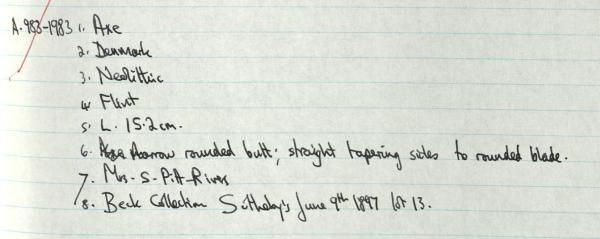 A. 983-1983 1. Axe
2. Denmark
3. Neolithic
4. Flint
5. L. 15.2cm.
6. Narrow rounded butt; straight tapering sides to rounded blade.
7. Mrs. S. Pitt-Rivers
8. Beck Collection Sotheby's June 9th 1897 lot 13.